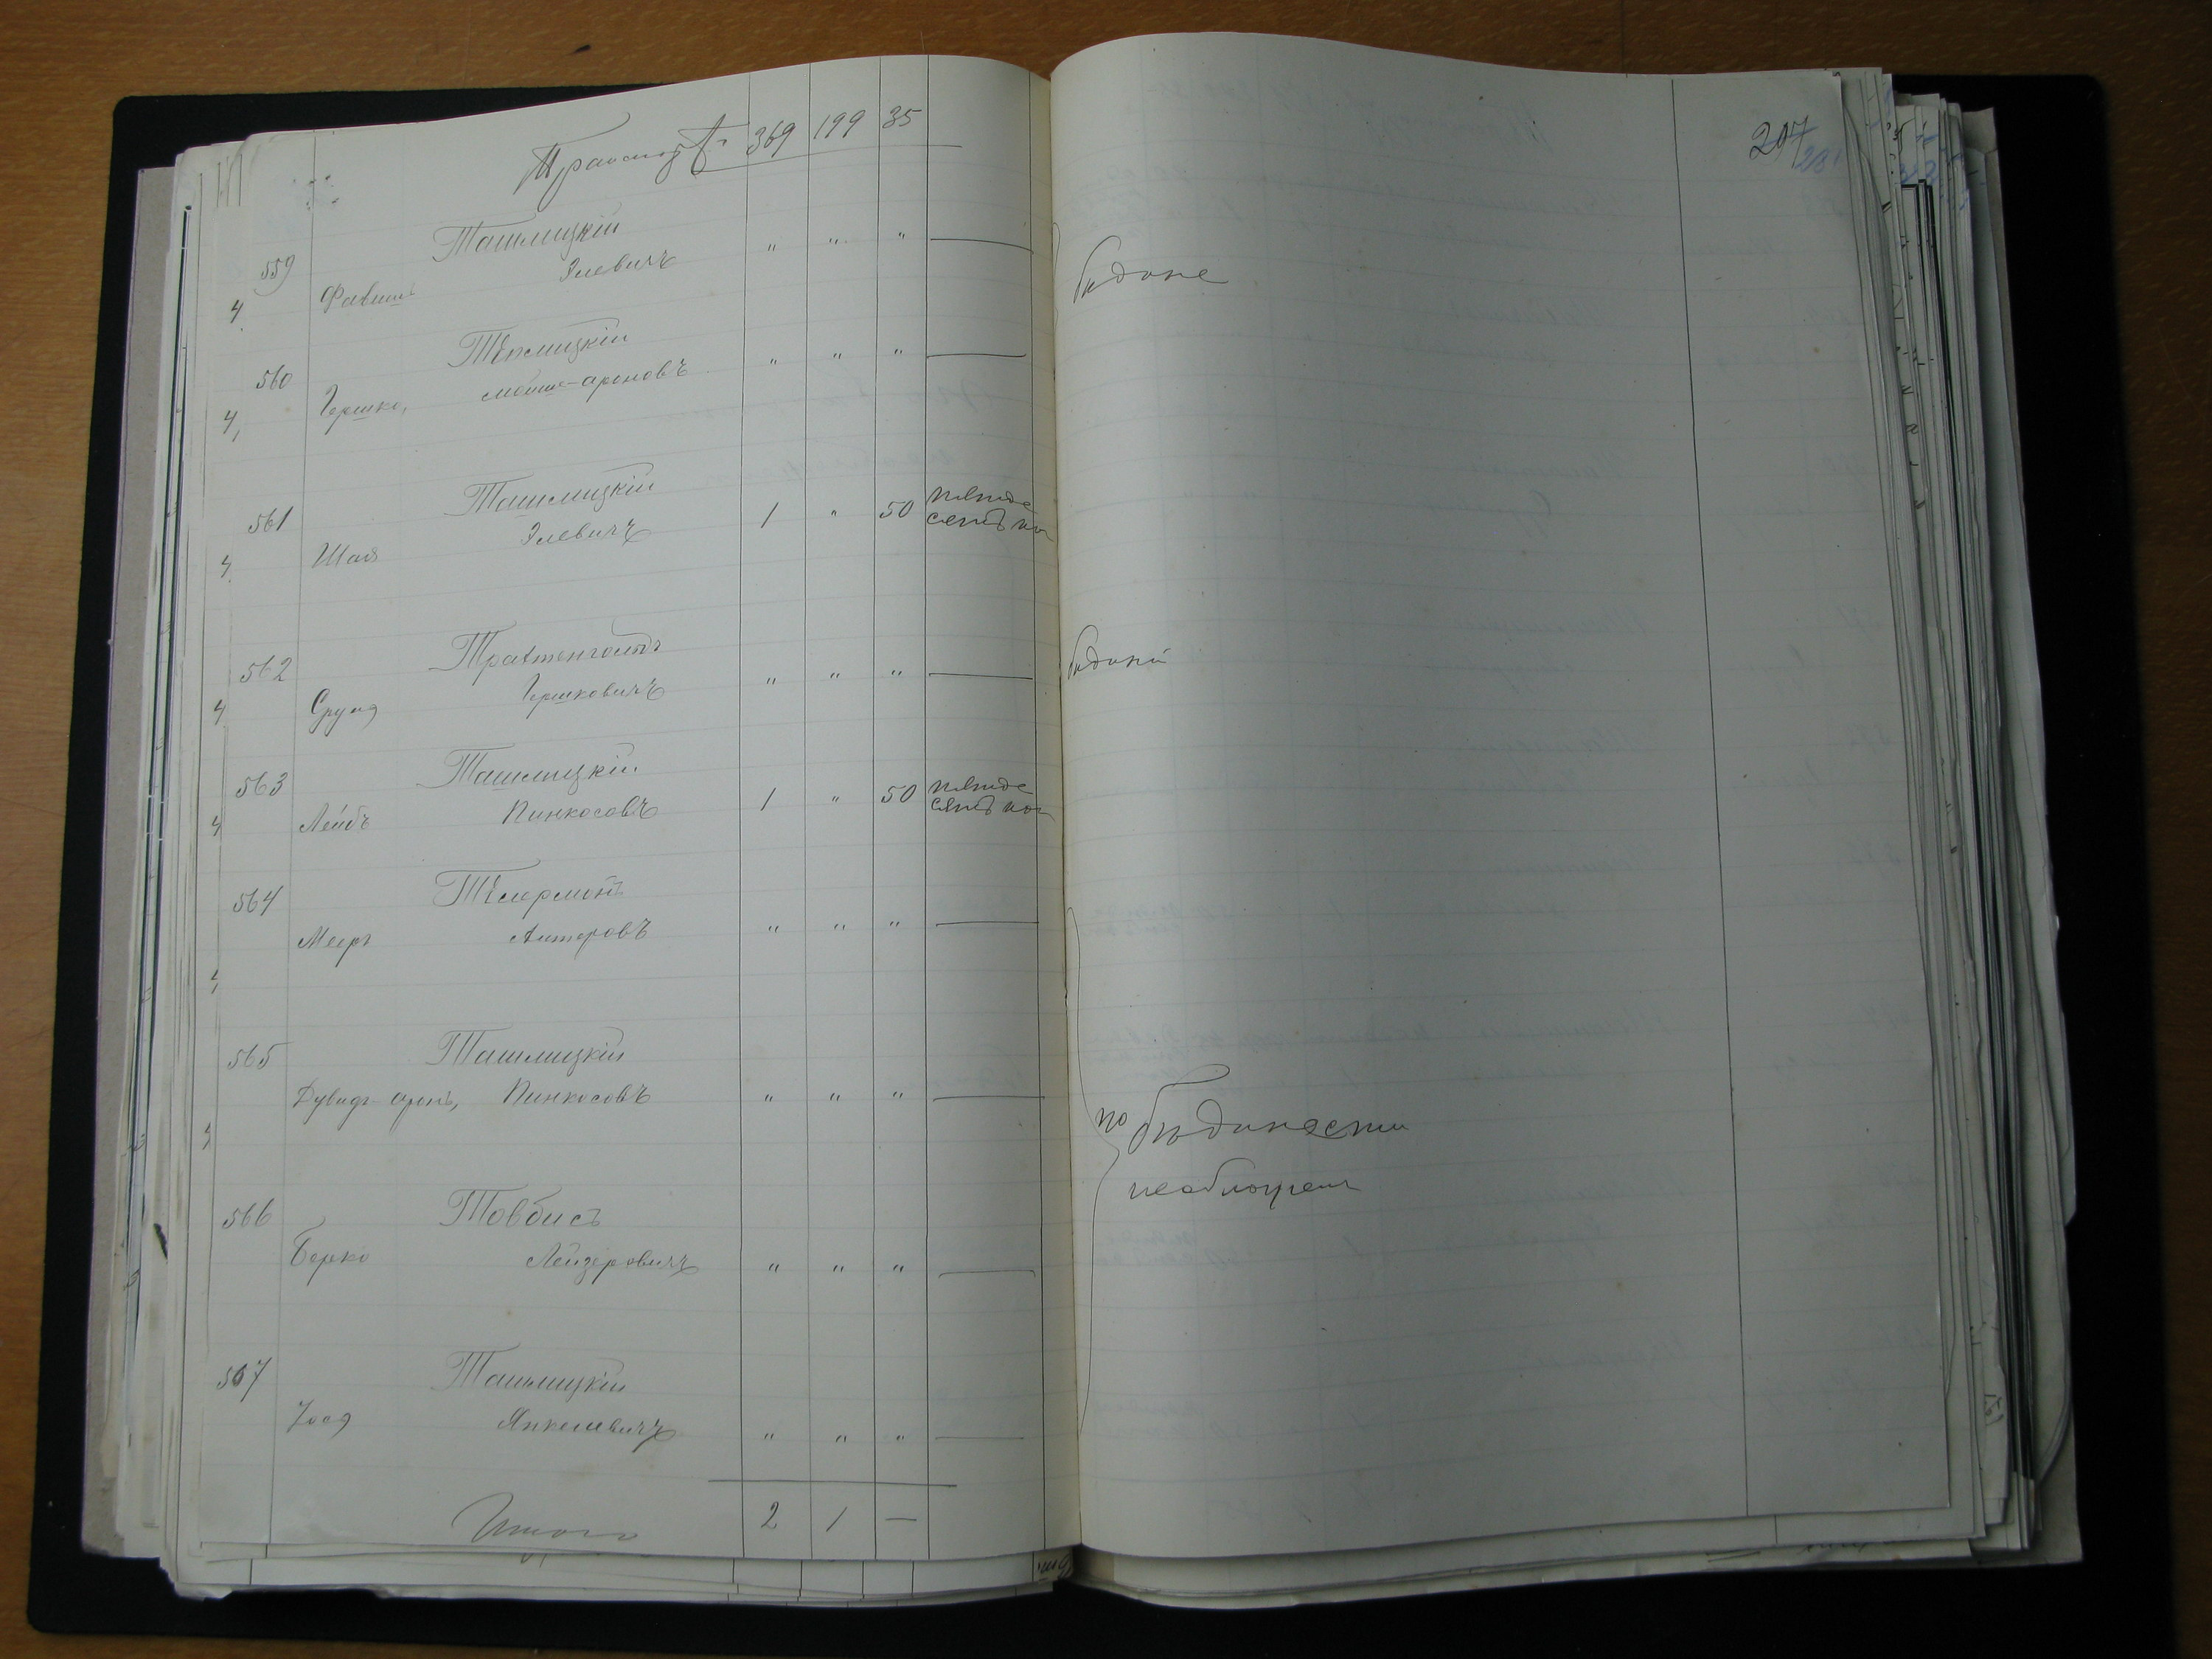 Транспортъ 369 199 35
207
559 Ташлицкій
4 Фавишъ Элевичъ " " " —
бѣдные
560 Тѣплицкій
4, Гершко, мошко-ароновъ " " " —
561 Ташлицкій
4 Шая Элевичъ 1 " 50 пятьде
сятъ ко
562 Трахтенгольтъ
4 Сруля Гершковичъ " " " —
бѣдный
563 Ташлицкій
4 Лейбъ Пинкосовъ 1 " 50 пятьде
сятъ коп
564
4 Мееръ Алтеровъ " " " —
565 Ташлицкій
4 Дувидъ-аронъ, Пинкосовъ " " " —
по бѣдности
необложен
566 Товбисъ
Берко Лейзеровичъ " " " —
567 Ташлицкій
Янкелевичъ " " " —
Итого 2 1 —